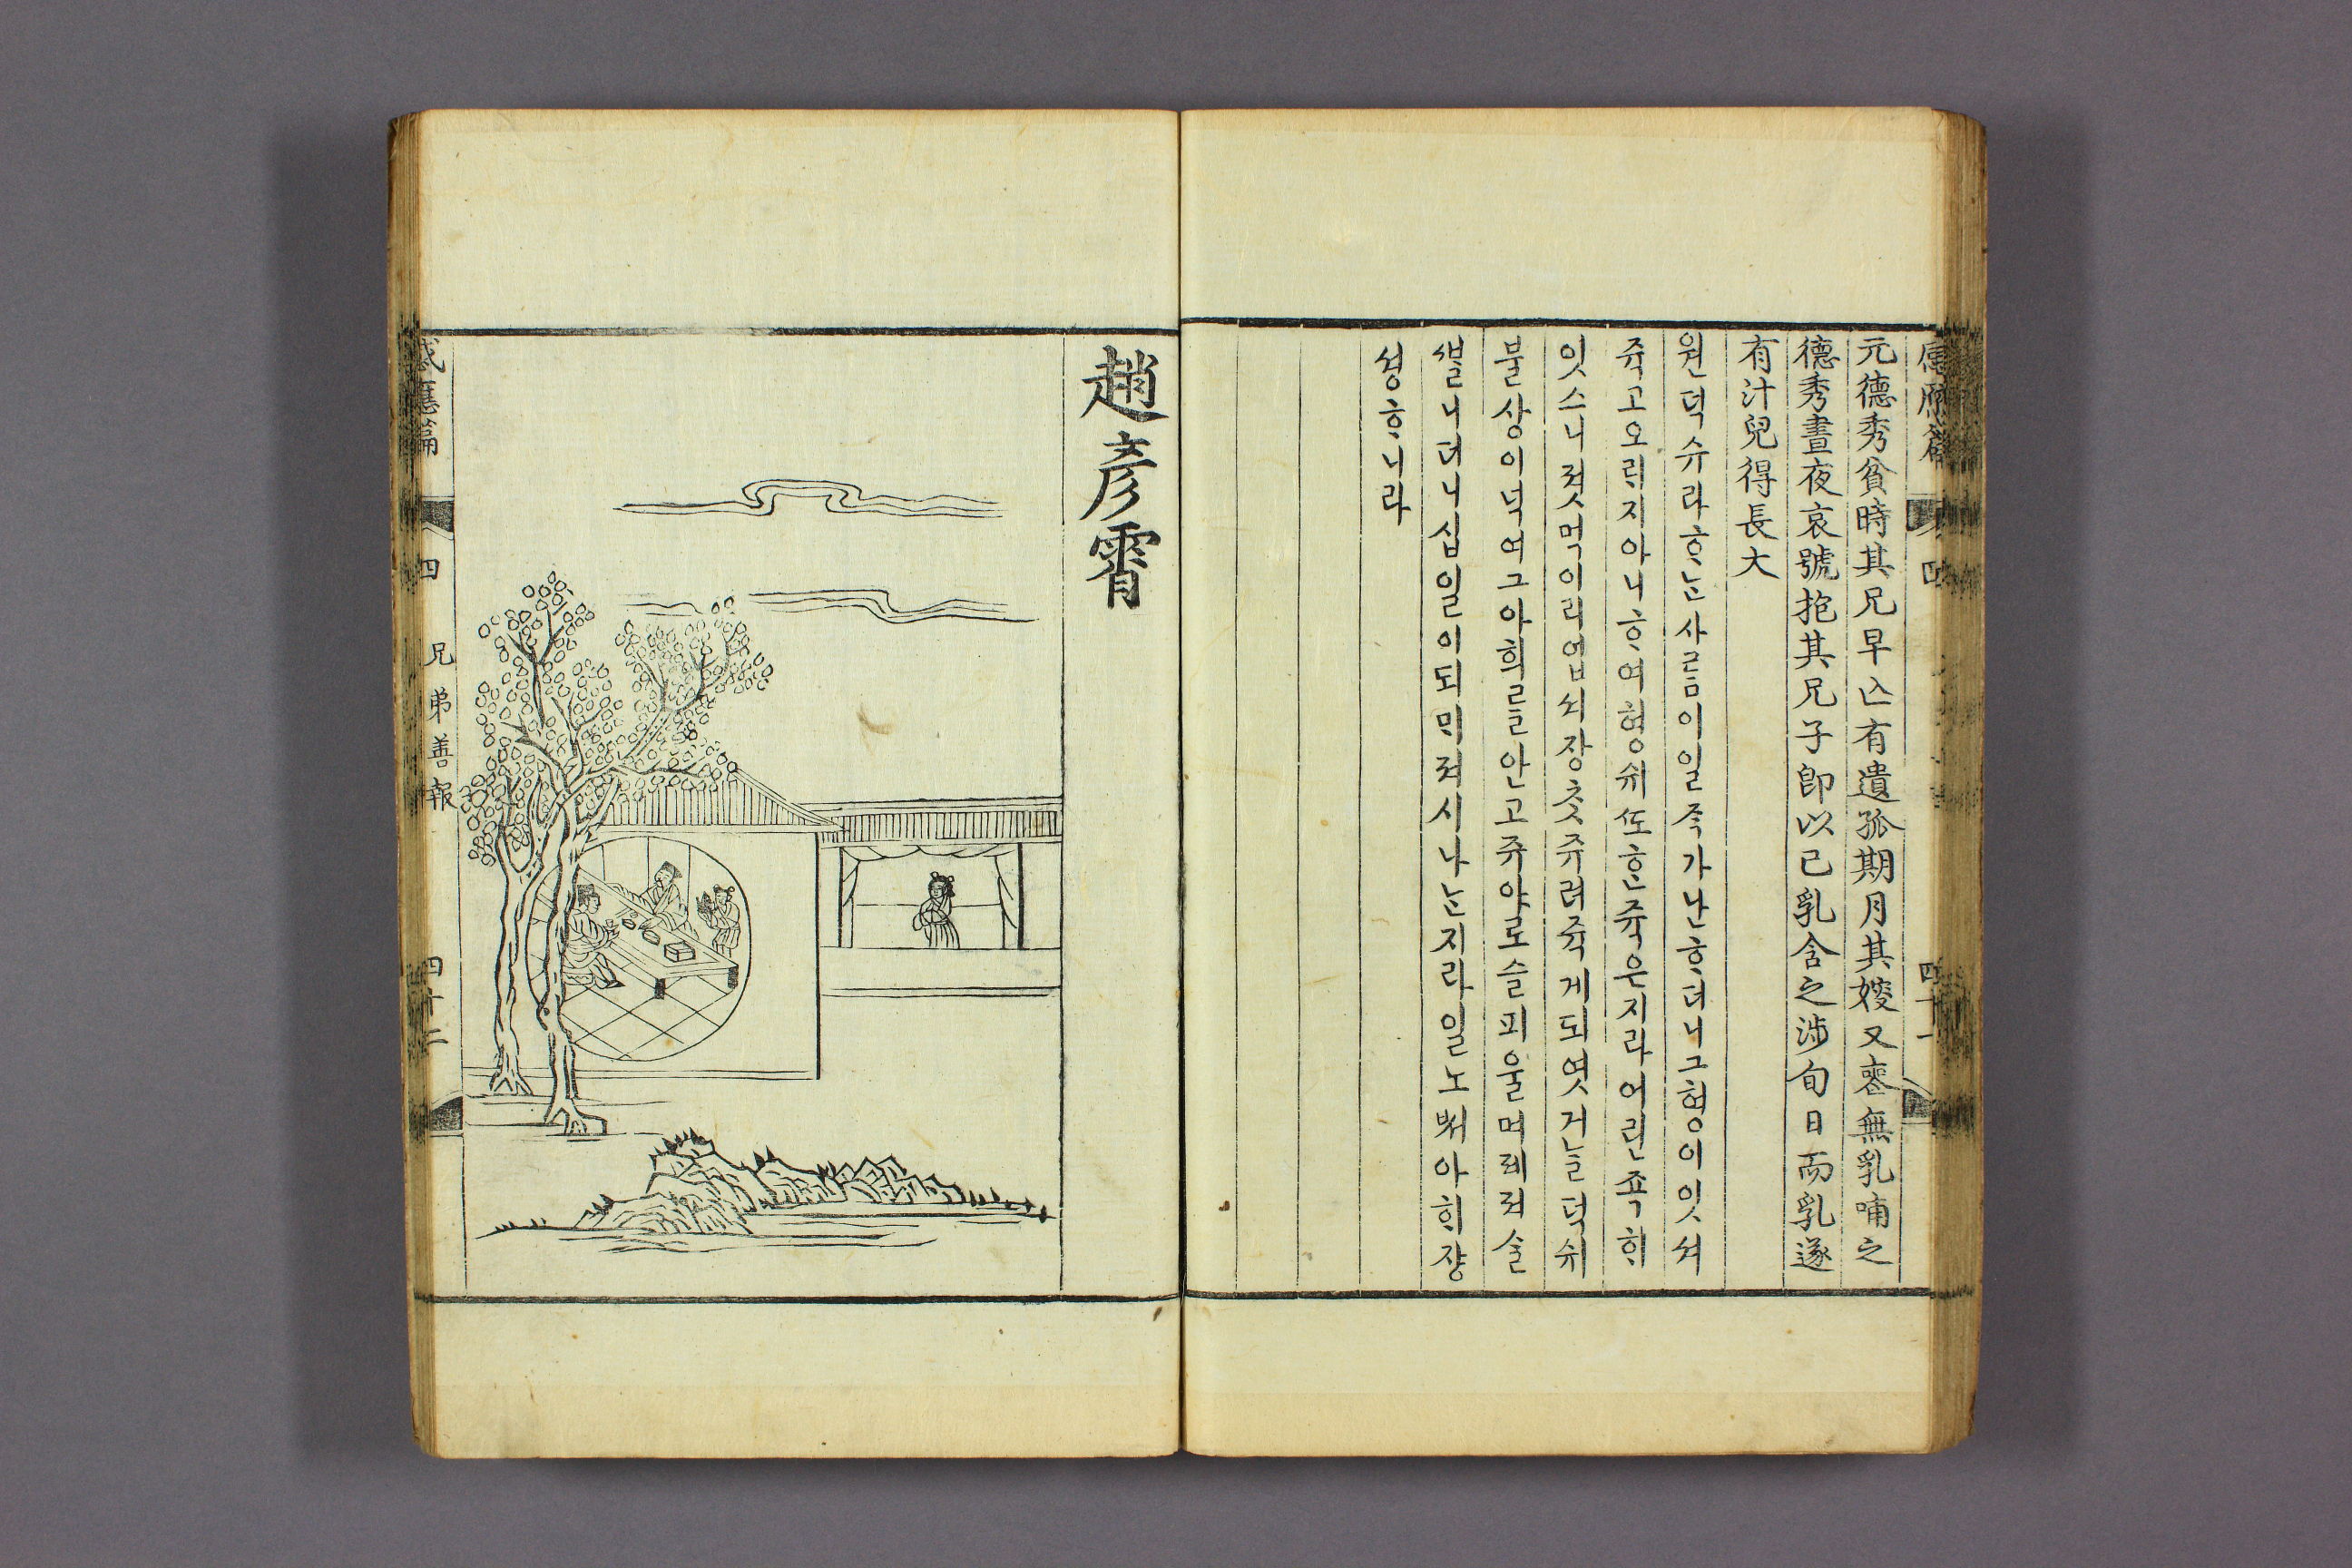 元德秀貧時其兄早亾有遺孤期月其嫂又喪無乳哺之
德秀晝夜哀號抱其兄子卽以己乳含之涉旬日而乳遂
有汁兒得長大
원덕슈라ᄒᆞᄂᆞᆫ사ᄅᆞᆷ이일즉가난ᄒᆞ더니그형이잇셔
쥭고오ᄅᆡ지아니ᄒᆞ여형쉬ᄯᅩᄒᆞᆫ쥭은지라어린죡ᄒᆡ
잇스니졋먹이리업셔장ᄎᆞᆺ쥬려쥭게되엿거ᄂᆞᆯ덕쉬
불상이넉여그아희ᄅᆞᆯ안고쥬야로슬피울며제져ᄉᆞᆯ
ᄲᆞᆯ니더니십일이되ᄆᆡ져시나ᄂᆞᆫ지라일노ᄡᅥ아ᄒᆡ쟝
셩ᄒᆞ니라
趙彦霄
感應篇 四 兄弟善報 四十二